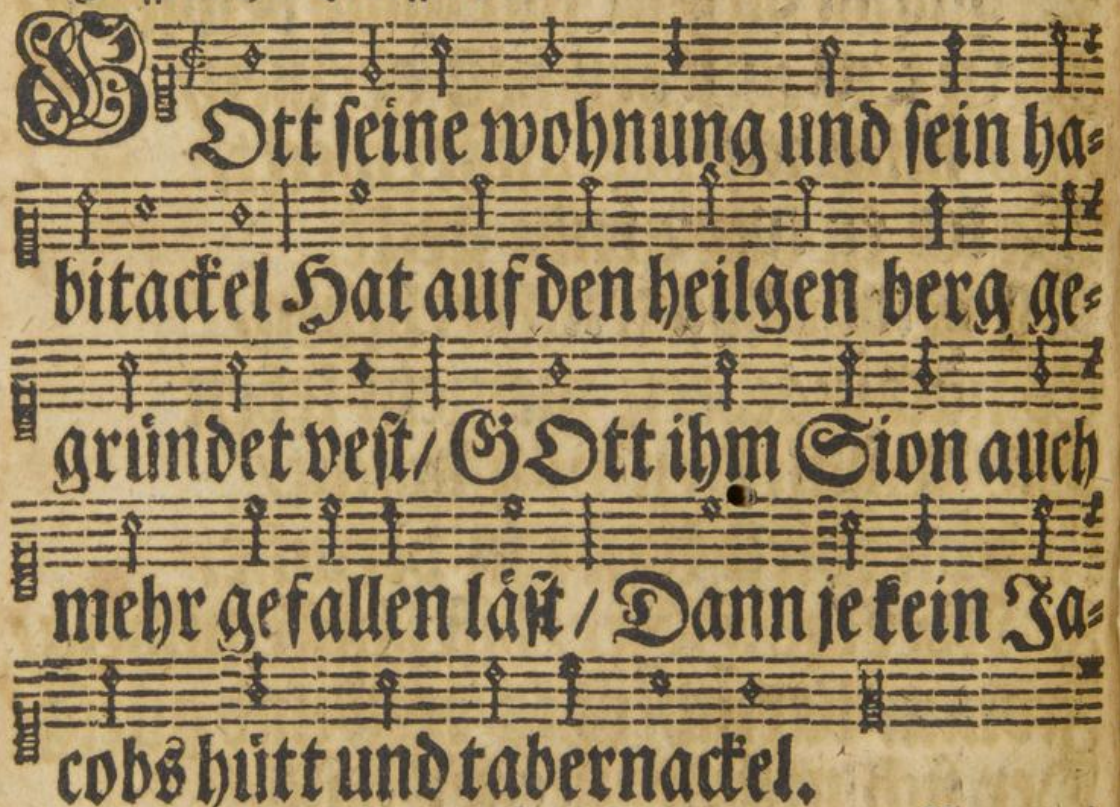 GOtt seine wohnung und sein ha=
bitackel Hat auf den heilgen berg ge=
gründet vest/ GOtt ihm Sion auch
mehr gefallen läst / Dann je kein Ja=
cobs hütt und tabernackel.